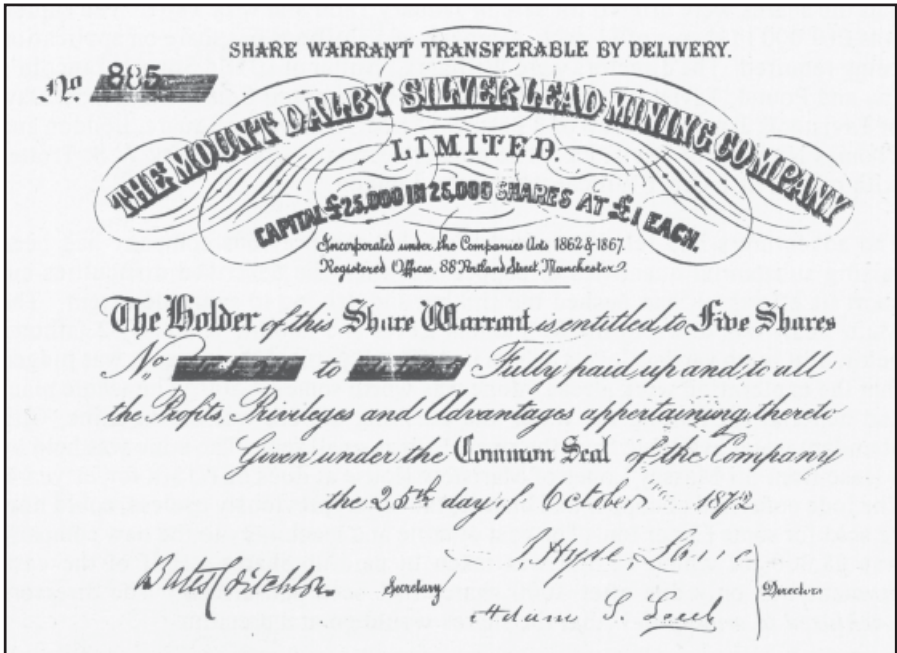 SHARE WARRANT TRANSFERABLE BY DELIVERY.
No. 885
THE MOUNT DALBY SILVER LEAD MINING COMPANY
LIMITED.
CAPITAL £25,000 IN 25,000 SHARES AT £1 EACH.
Incorporated under the Companies Acts 1862 & 1867.
Registered Offices, 88 Portland Street, Manchester.
The Holder of this Share Warrant is entitled to Five Shares
No to Fully paid up and to all
the Profits, Privileges and Advantages appertaining thereto
Given under the Common Seal of the Company
the 25th day of October 1872
J. Hyde
Bates Secretary Directors
Adam S.